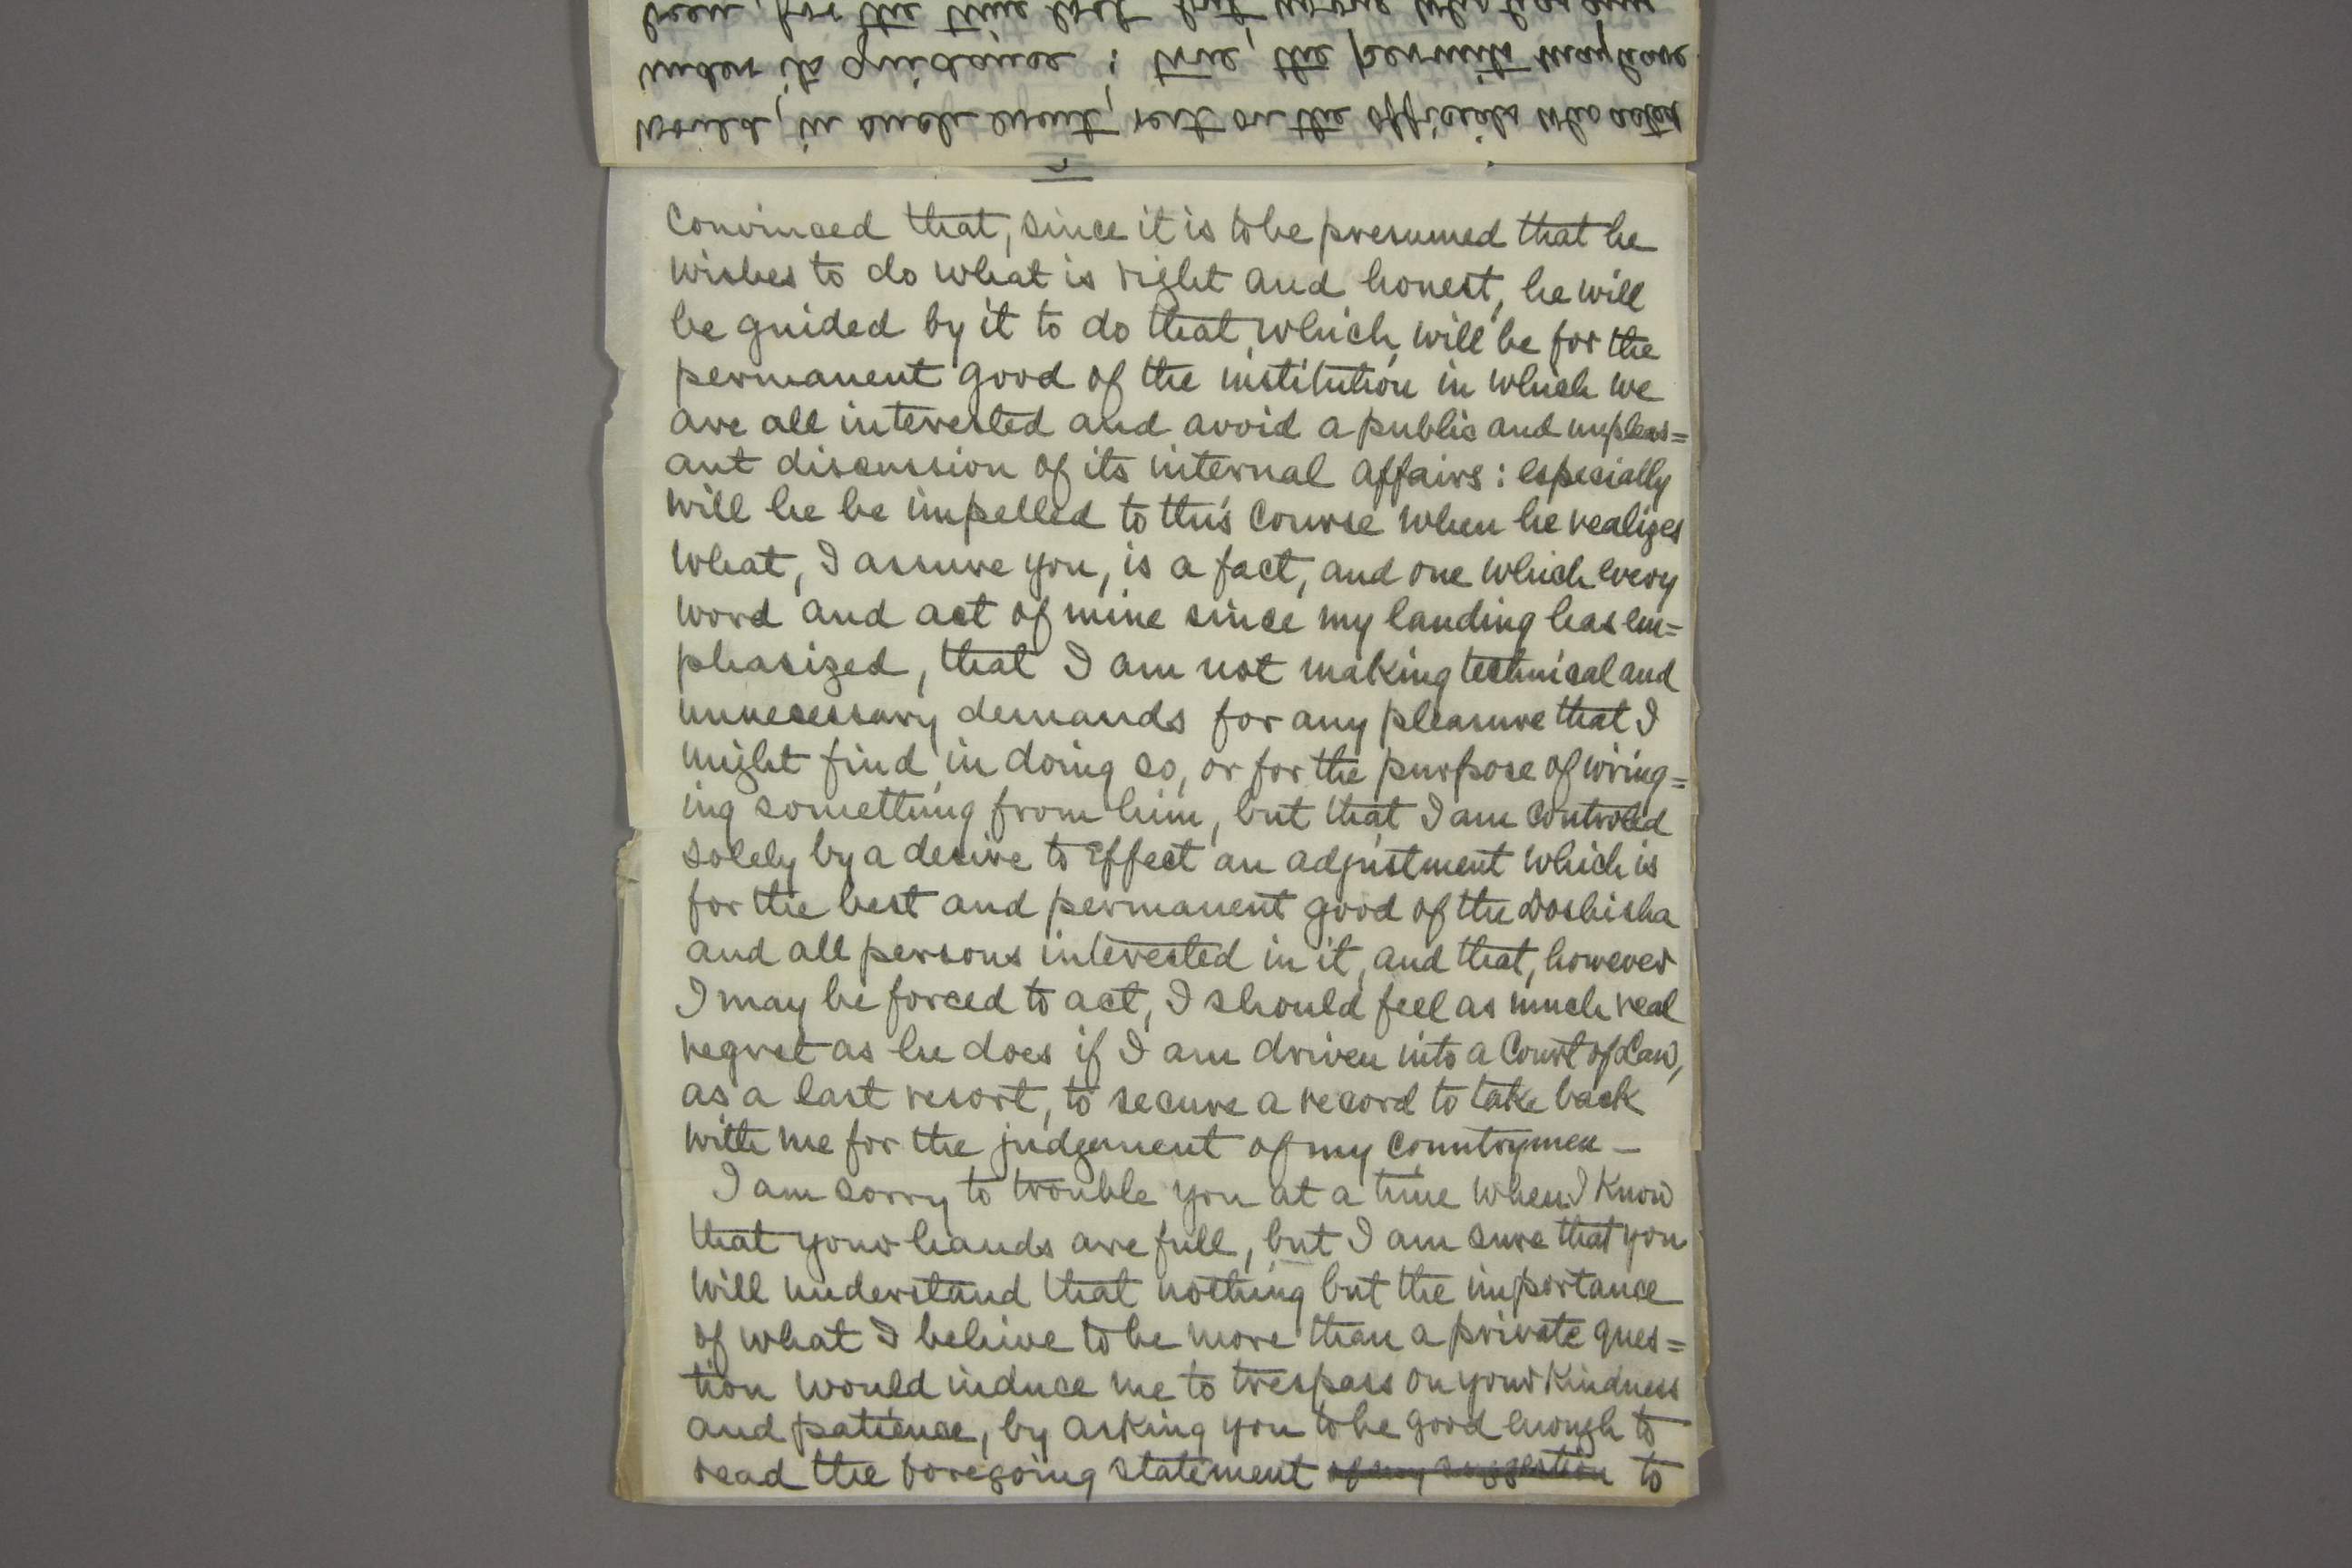 would, in such event, rest on the officials who acted
under it : true, the permits may have
been, for the time
convinced that, since it is to be presumed that he
wishes to do what is right and honest, he will
be guided by it to do that which will be for the
permanent good of the institution in which we
are all interested and avoid a public and unpleas=
ant discussion of its internal affairs: especially
will he be impelled to this course when he realizes
what, I assure you, is a fact, and one which every
word and act of mine since my landing has em=
phasized, that I am not making technical and
unnecessary demands for any pleasure that I
might find in doing so, or for the purpose of wring=
ing something from him, but that I am controled
solely by a desire to effect an adjustment which is
for the best and permanent good of the Doshisha
and all persons interested in it, and that, however
I may be forced to act, I should feel as much real
regret as he does if I am driven into a Court of Law,
as a last resort, to secure a record to take back
with me for the judgement of my countrymen —
I am sorry to trouble you at a time when I know
that your hands are full, but I am sure that you
will understand that nothing but the importance
of what I believe to be more than a private ques=
tion would induce me to trespass on your kindness
and patience, by asking you to be good enough to
read the foregoing statement of my suggestion to